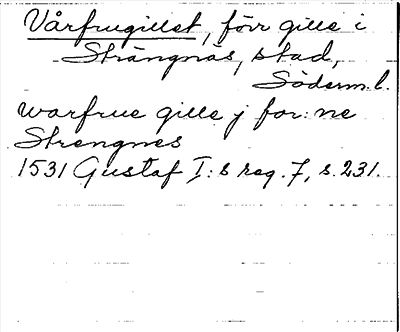 Vårfrugillet, förr gille i
Strängnäs, stad,
Söderm. l.
warfrue gille j for:ne
Strengnes
1531 Gustaf I:s reg. 7, s. 231.